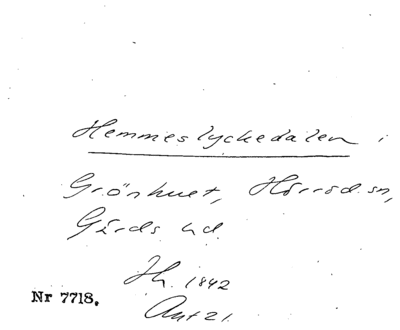 Hemmeslyckedalen i
Grönhuet, Hörröd sn,
Gärds hd.
Jh. 1842
Akt 21.
Nr 7718.